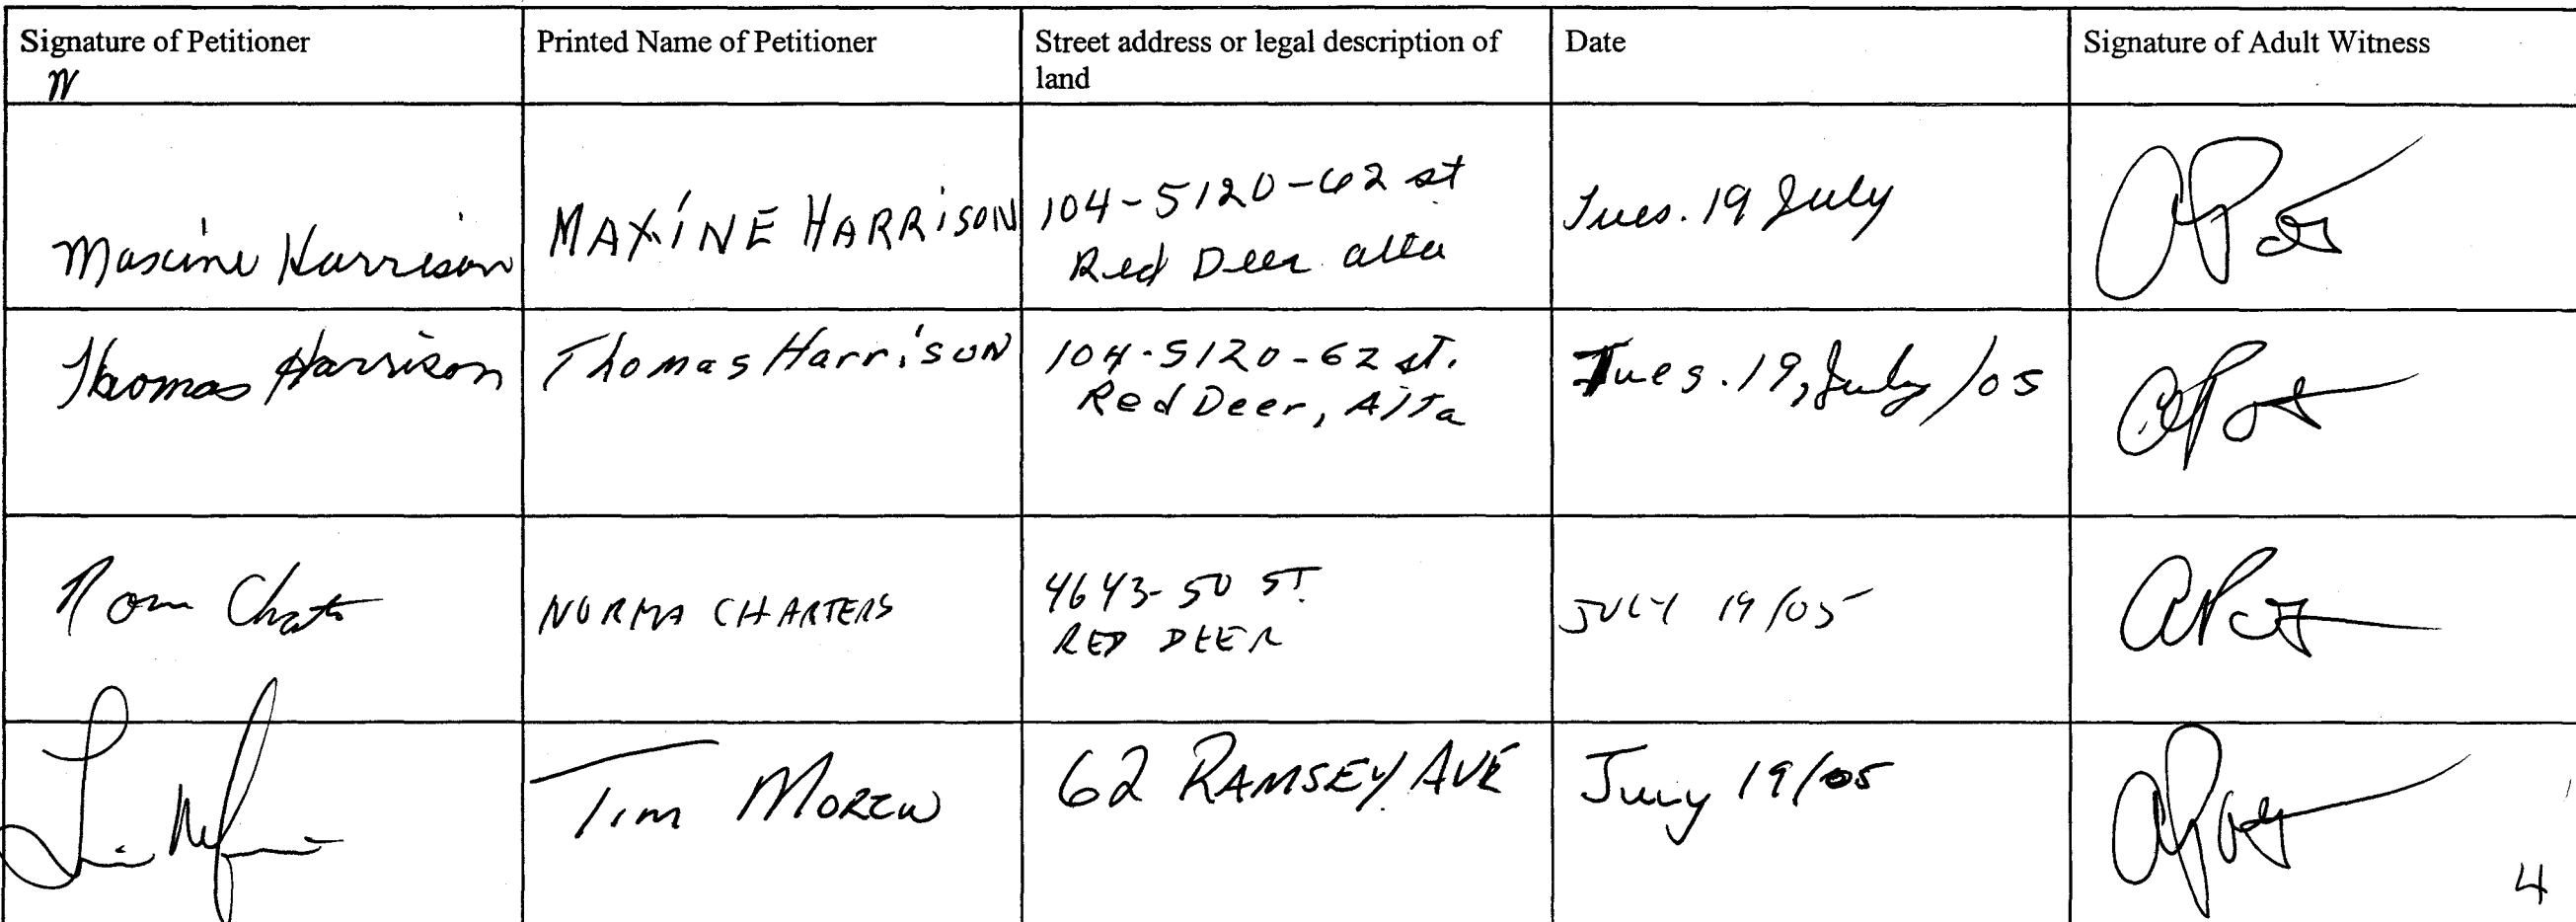 Signature of Petitioner
Printed Name of Petitioner
Street address or legal description of
land
Date
Signature of Adult Witness
Maxine Harrison
MAXINE HARRISON
104-5120-62 st
Red Deer alta
Tues. 19 July
Thomas Harrison
Thomas Harrison
104-5120-62 st.
Red Deer, Alta
Tues. 19, July /05
NORMA CHARTERS
4643-50 ST.
RED DEER
JULY 19/05
Tim
62 RAMSEY AVE
July 19/05
4